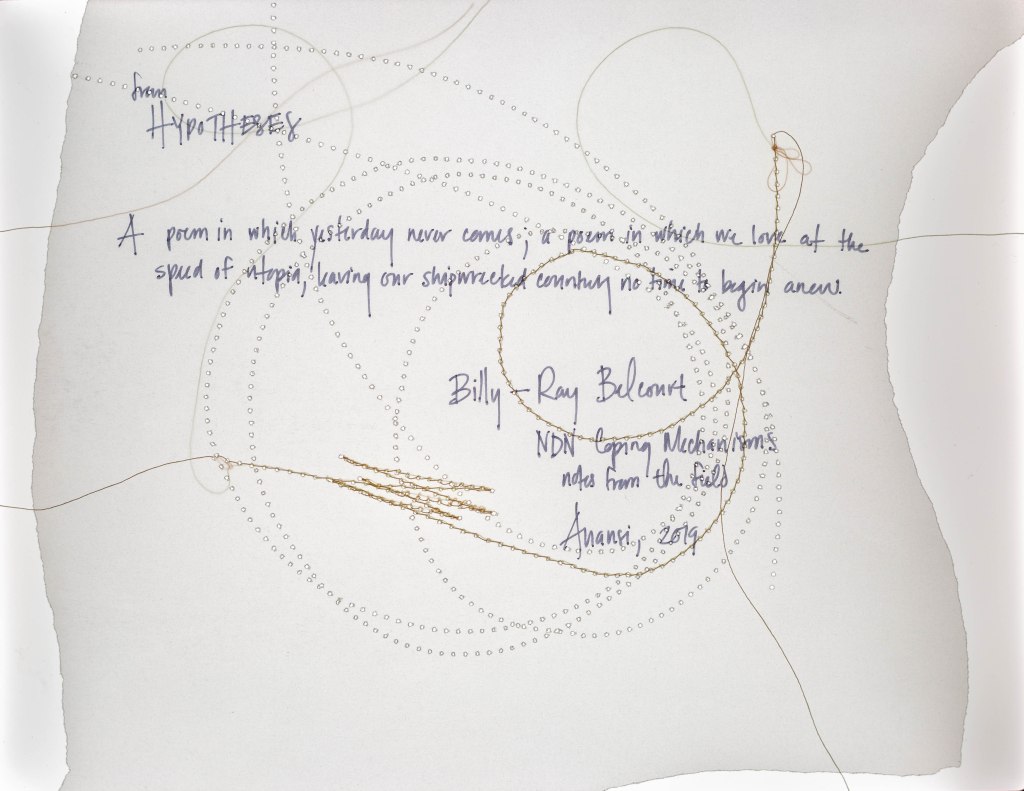 from
HYPOTHESES
A poem in which yesterday never comes; a poem in which we love at the
speed of utopia, leaving our shipwrecked country no time to begin anew.
Billy-Ray Belcourt
NDN Coping Mechanisms
notes from the field
Anansi, 2019